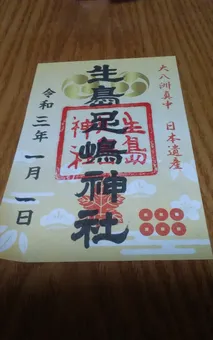 大八洲真中 日本遺産
生島足嶋神社
生島
神社
令和三年一月一日